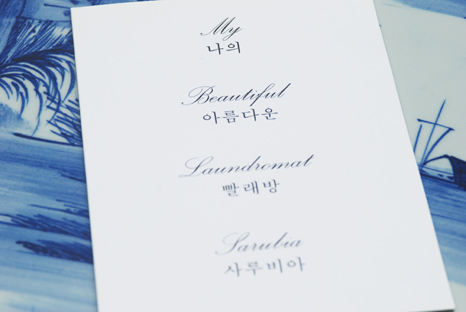 My
나의
Beautiful
아름다운
Laundromat
빨래방
Sarubia
사루비아